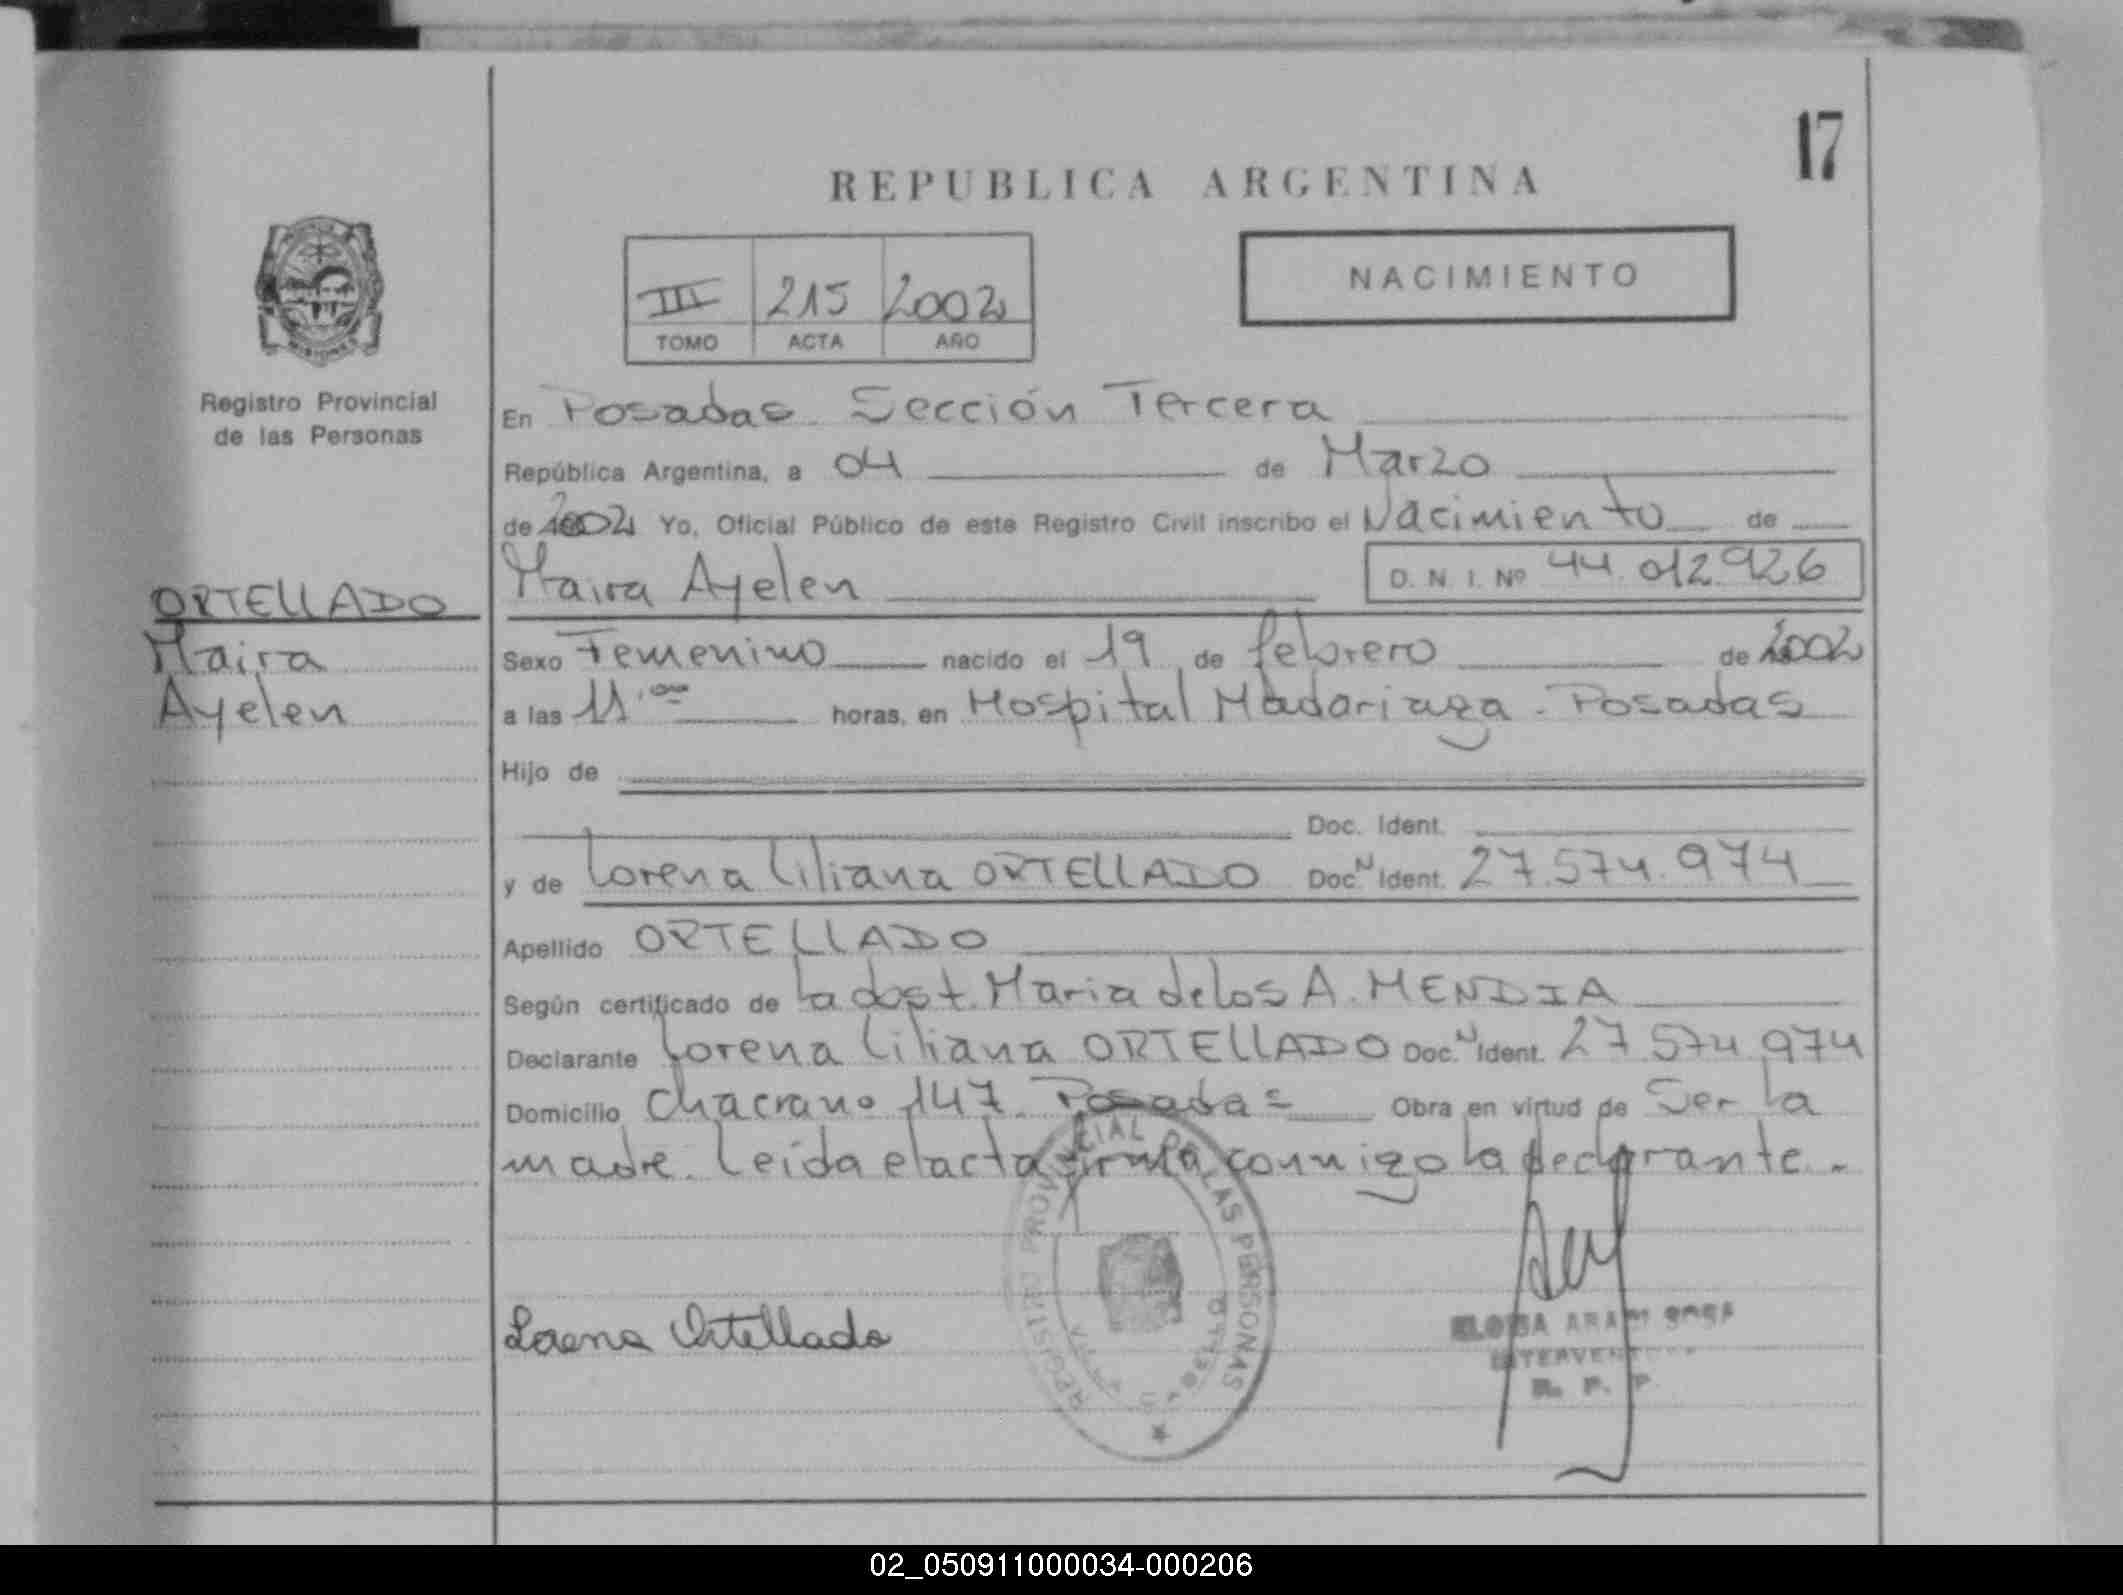 17
REPUBLICA ARGENTINA
III 215 2002
TOMO ACTA AÑO
NACIMIENTO
MISIONES
Registro Provincial
de las Personas
ORTELLADO
Maira
Ayelen
En Posadas Sección Tercera
República Argentina, a 04 de Marzo
de 2002 Yo, Oficial Público de este Registro Civil inscribo el Nacimiento de
Maira Ayelen D. N. I. Nº 44.012.926
Sexo Femenino nacido el 19 de febrero de 2002
a las 11 horas, en Hospital Madariaga - Posadas
Hijo de
Doc. Ident.
y de Lorena Liliana ORTELLADO Doc. N Ident. 27.574.974
Apellido ORTELLADO
Según certificado de la obst. Maria de los A. MENDIA
Declarante Lorena Liliana ORTELLADO Doc. N Ident. 27.574.974
Domicilio chacra no 147 Posadas Obra en virtud de Ser la
madre. Leída el acta firma conmigo la declarante.-
REGISTRO PROVINCIAL DE LAS PERSONAS
Lorena Ortellado
R. P. P.
02_050911000034-000206